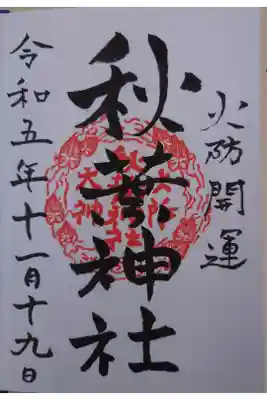 火防開運
秋葉神社
令和五年十一月十九日